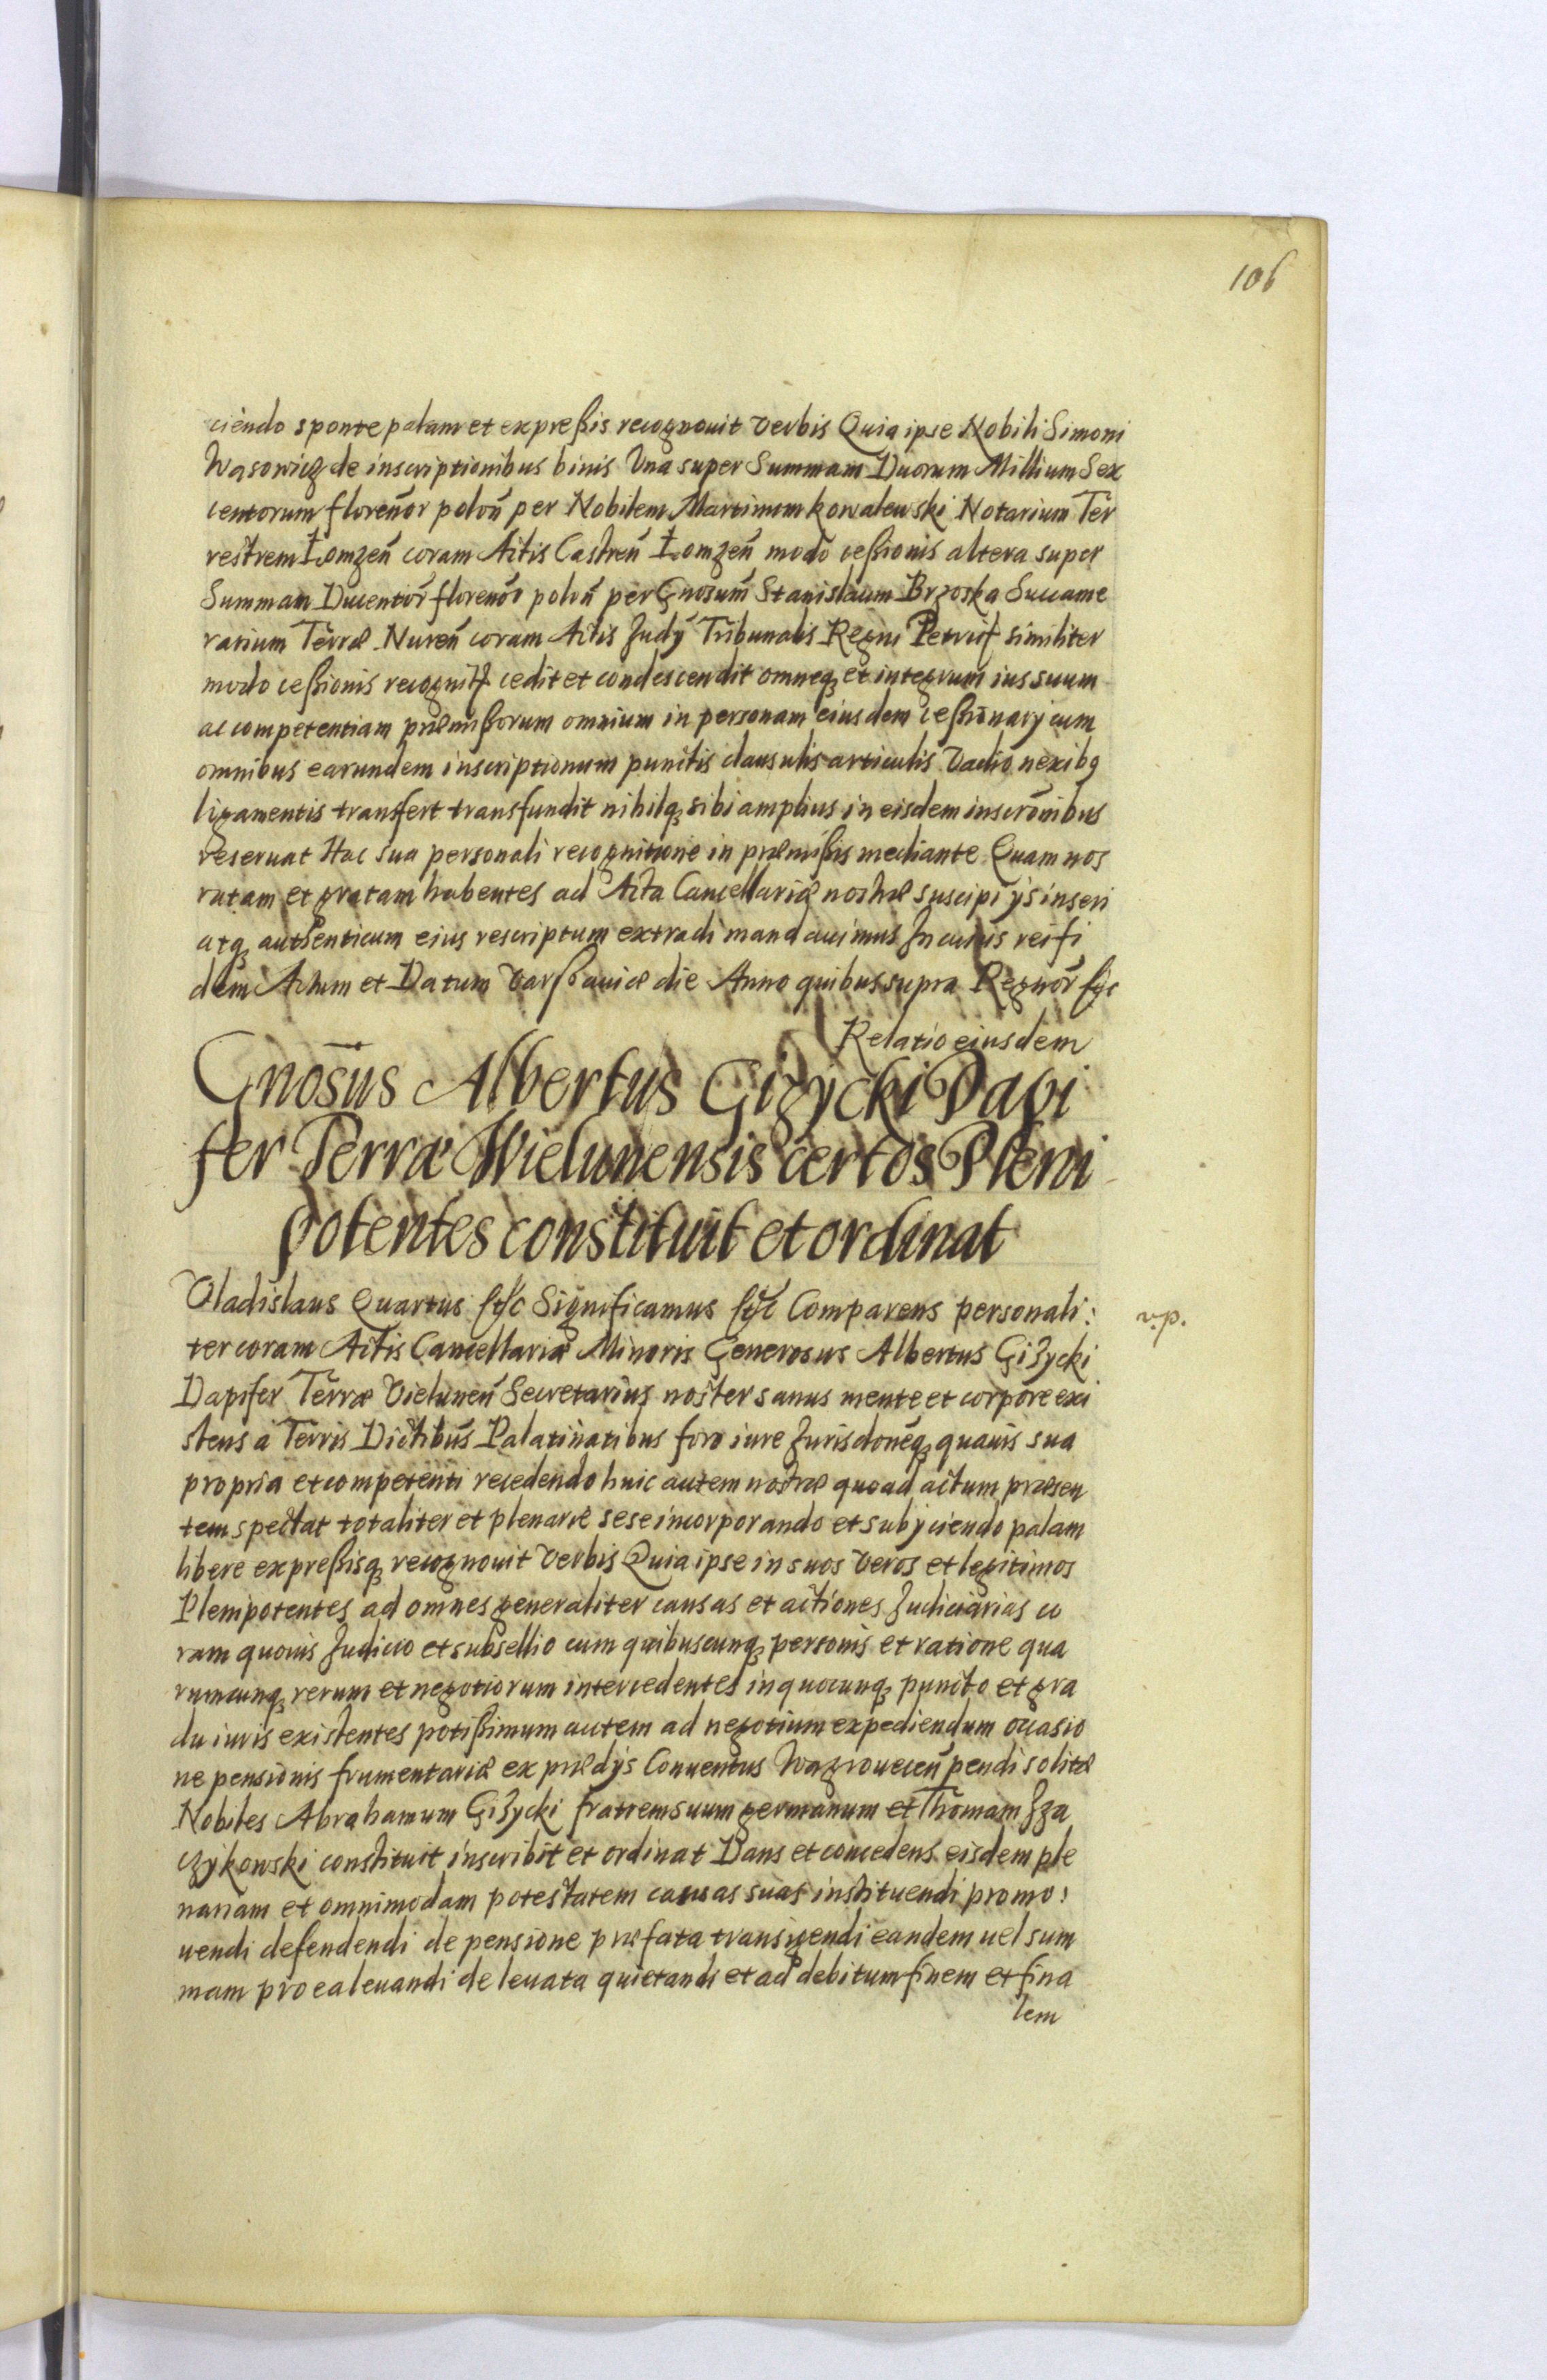 106
ciendo sponte palam et expreßis recognouit Verbis Quia ipse Nobili Simoni
Wąsowicz de inscriptionibus binis Una super Summam Duorum Millium Sex
centorum florenor̃ polon̄ per Nobilem Martinum Kowalewski Notarium Ter
restrem Łomzen̄ coram Actis Castren̄ Łomzen̄ modo ceßionis altera super
Summam Ducentor̃ florenor̃ polon̄ per Gnosum̄ Stanislaum Brzoska Succame
rarium Terræ Nuren̄ coram Actis Judÿ Tribunalis Regni Petricẜ similiter
modo ceßionis recognitẜ cedit et condescendit omneq́ et integrum ius suum
ac competentiam præmißorum omnium in personam eiusdem ceßionarÿ cum
omnibus earundem inscriptionum punctis clausulis articulis Vadio nexibꝯ
ligamentis transfert transfundit nihilq́ sibi amplius in eisdem inscrōnibus
reseruat Hac sua personali recognitione in præmißis mediante Quam nos
ratam et gratam habentes ad Acta Cancellariæ nostræ suscipi ÿs inseri
atq́ authenticum eius rescriptum extradi mandauimus In cuius rei fi
dem Actum et Datum Varßauiæ die Anno quibus supra Regnor̃ &c
Relatio eiusdem
Gnōsus Albertus Gizycki Dapi
fer Terræ Wielunensis certos Pleni
potentes constituit et ordinat
Vladislaus Quartus &c Significamus &c Comparens personali:
v.p.
ter coram Actis Cancellariæ Minoris Generosus Albertus Giżycki
Dapifer Terræ Vielunen̄ Secretarius noster sanus mente et corpore exi
stens a Terris Dictibus̄ Palatinatibus foro iure Jurisdoneq́ quauis sua
propria et competenti recedendo huic autem nostræ quoad actum præsen
tem spectat totaliter et plenarie sese incorporando et subÿciendo palam
libere expreßisq́ recognouit Verbis Quia ipse in suos Veros et legitimos
Plenipotentes ad omnes generaliter causas et actiones Judiciarias co
ram quouis Judicio et subsellio cum quibuscunq́ personis et ratione qua
rumcunq́ rerum et negotiorum intercedentes in quocunq́ puncto et gra
du iuris existentes potißimum autem ad negotium expediendum occasio
ne pensionis frumentariæ ex prædÿs Conuentus Wagrowecen̄ pendi solitæ
Nobiles Abrahamum Giżycki fratrem suum germanum et Thomam Sza
czykowski constituit inscribit et ordinat Dans et concedens eisdem ple
nariam et omnimodam potestatem causas suas instituendi promo:
uendi defendendi de pensione præfata transigendi eandem uel sum
mam pro ea leuandi de leuata quietandi et ad debitum finem et fina
lem